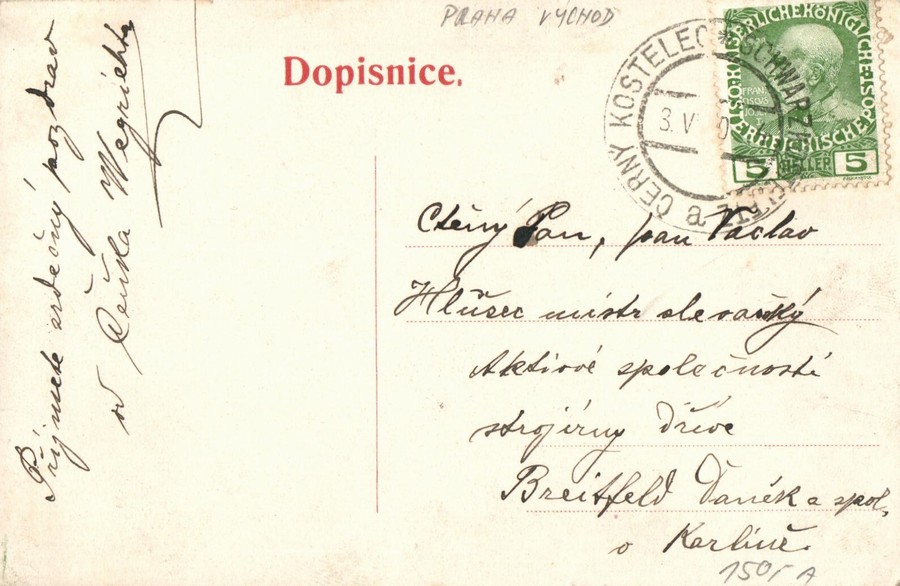 PRAHA VÝCHOD
Dopisnice.
ČERNÝ KOSTELEC * SCHWARZ
3. V
KAISERLICHE KÖNIGLICHE
ÖSTERREICHISCHE POST
FRAN
CISCVS
5 HELLER 5
Přijmete srdečný pozdrav
od Čeňka
Ctěný Pan, pan Václav
Hlušec mistr slevačský
Aktiové společnosti
strojírny dříve
Breitfeld Daněk a spol.
v Karlíně.
150,- A